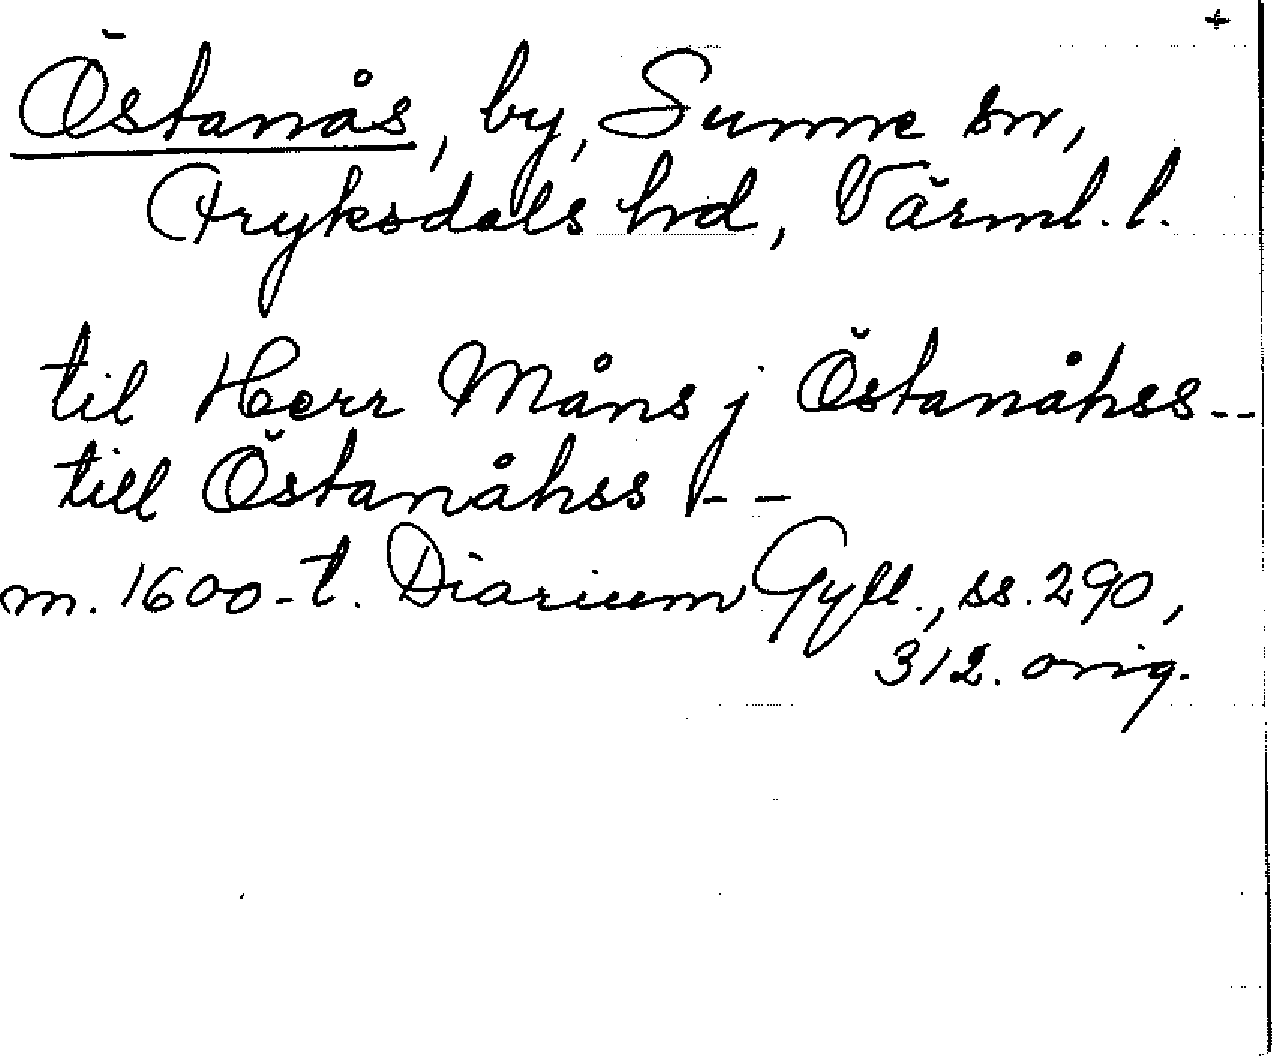 +
Östanås, by, Sunne sn,
Fryksdals hd, Värml. l.
til Herr Måns j Östanåhss--
till Östanåhss --
m. 1600-t. Diarium Gyll., ss. 290,
312. orig.